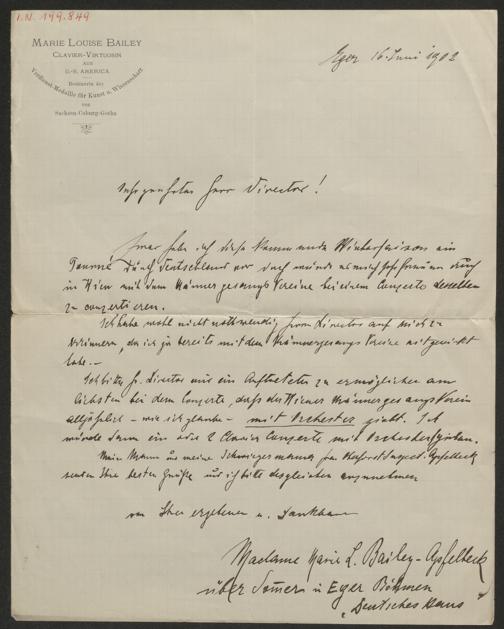 I.N. 199.849
MARIE LOUISE BAILEY
CLAVIER-VIRTUOSIN
AUS
U.-S. AMERICA
Besitzerin der
Verdienst-Medaille für Kunst u. Wissenschaft
von
Sachsen-Coburg-Gotha
Eger 16. Juni 1902
Sehr geehrter Herr Director!
Zwar habe ich diese kommende Wintersaison ein
Tourné durch Deutschland vor doch würde es mich sehr freuen auch
in Wien mit dem Männergesangs Vereine bei einem Concerte desselben
zu conzertieren.
Ich habe wohl nicht nothwendig Herrn Director auf mich zu
erinnern, da ich ja bereits mit dem Männergesangs Vereine mitgewirkt
habe. –
Ich bitte H. Director mir ein Auftreten zu ermöglichen am
liebsten bei dem Concerte, daß der Wiener Männergesangs Verein
alljährlich – wie ich glaube – mit Orchester giebt. Ich
würde dann ein oder 2 Clavier Concerte mit Orchester spielen.
Mein Mann und meine Schwiegermama Apfelbeck
senden Ihre besten Grüße und ich bitte desgleichen anzunehmen
von Ihrer ergebenen u. dankbaren
Madame Marie L. Bailey-Apfelbeck
über Sommer in Eger Böhmen
"Deutsches Haus"